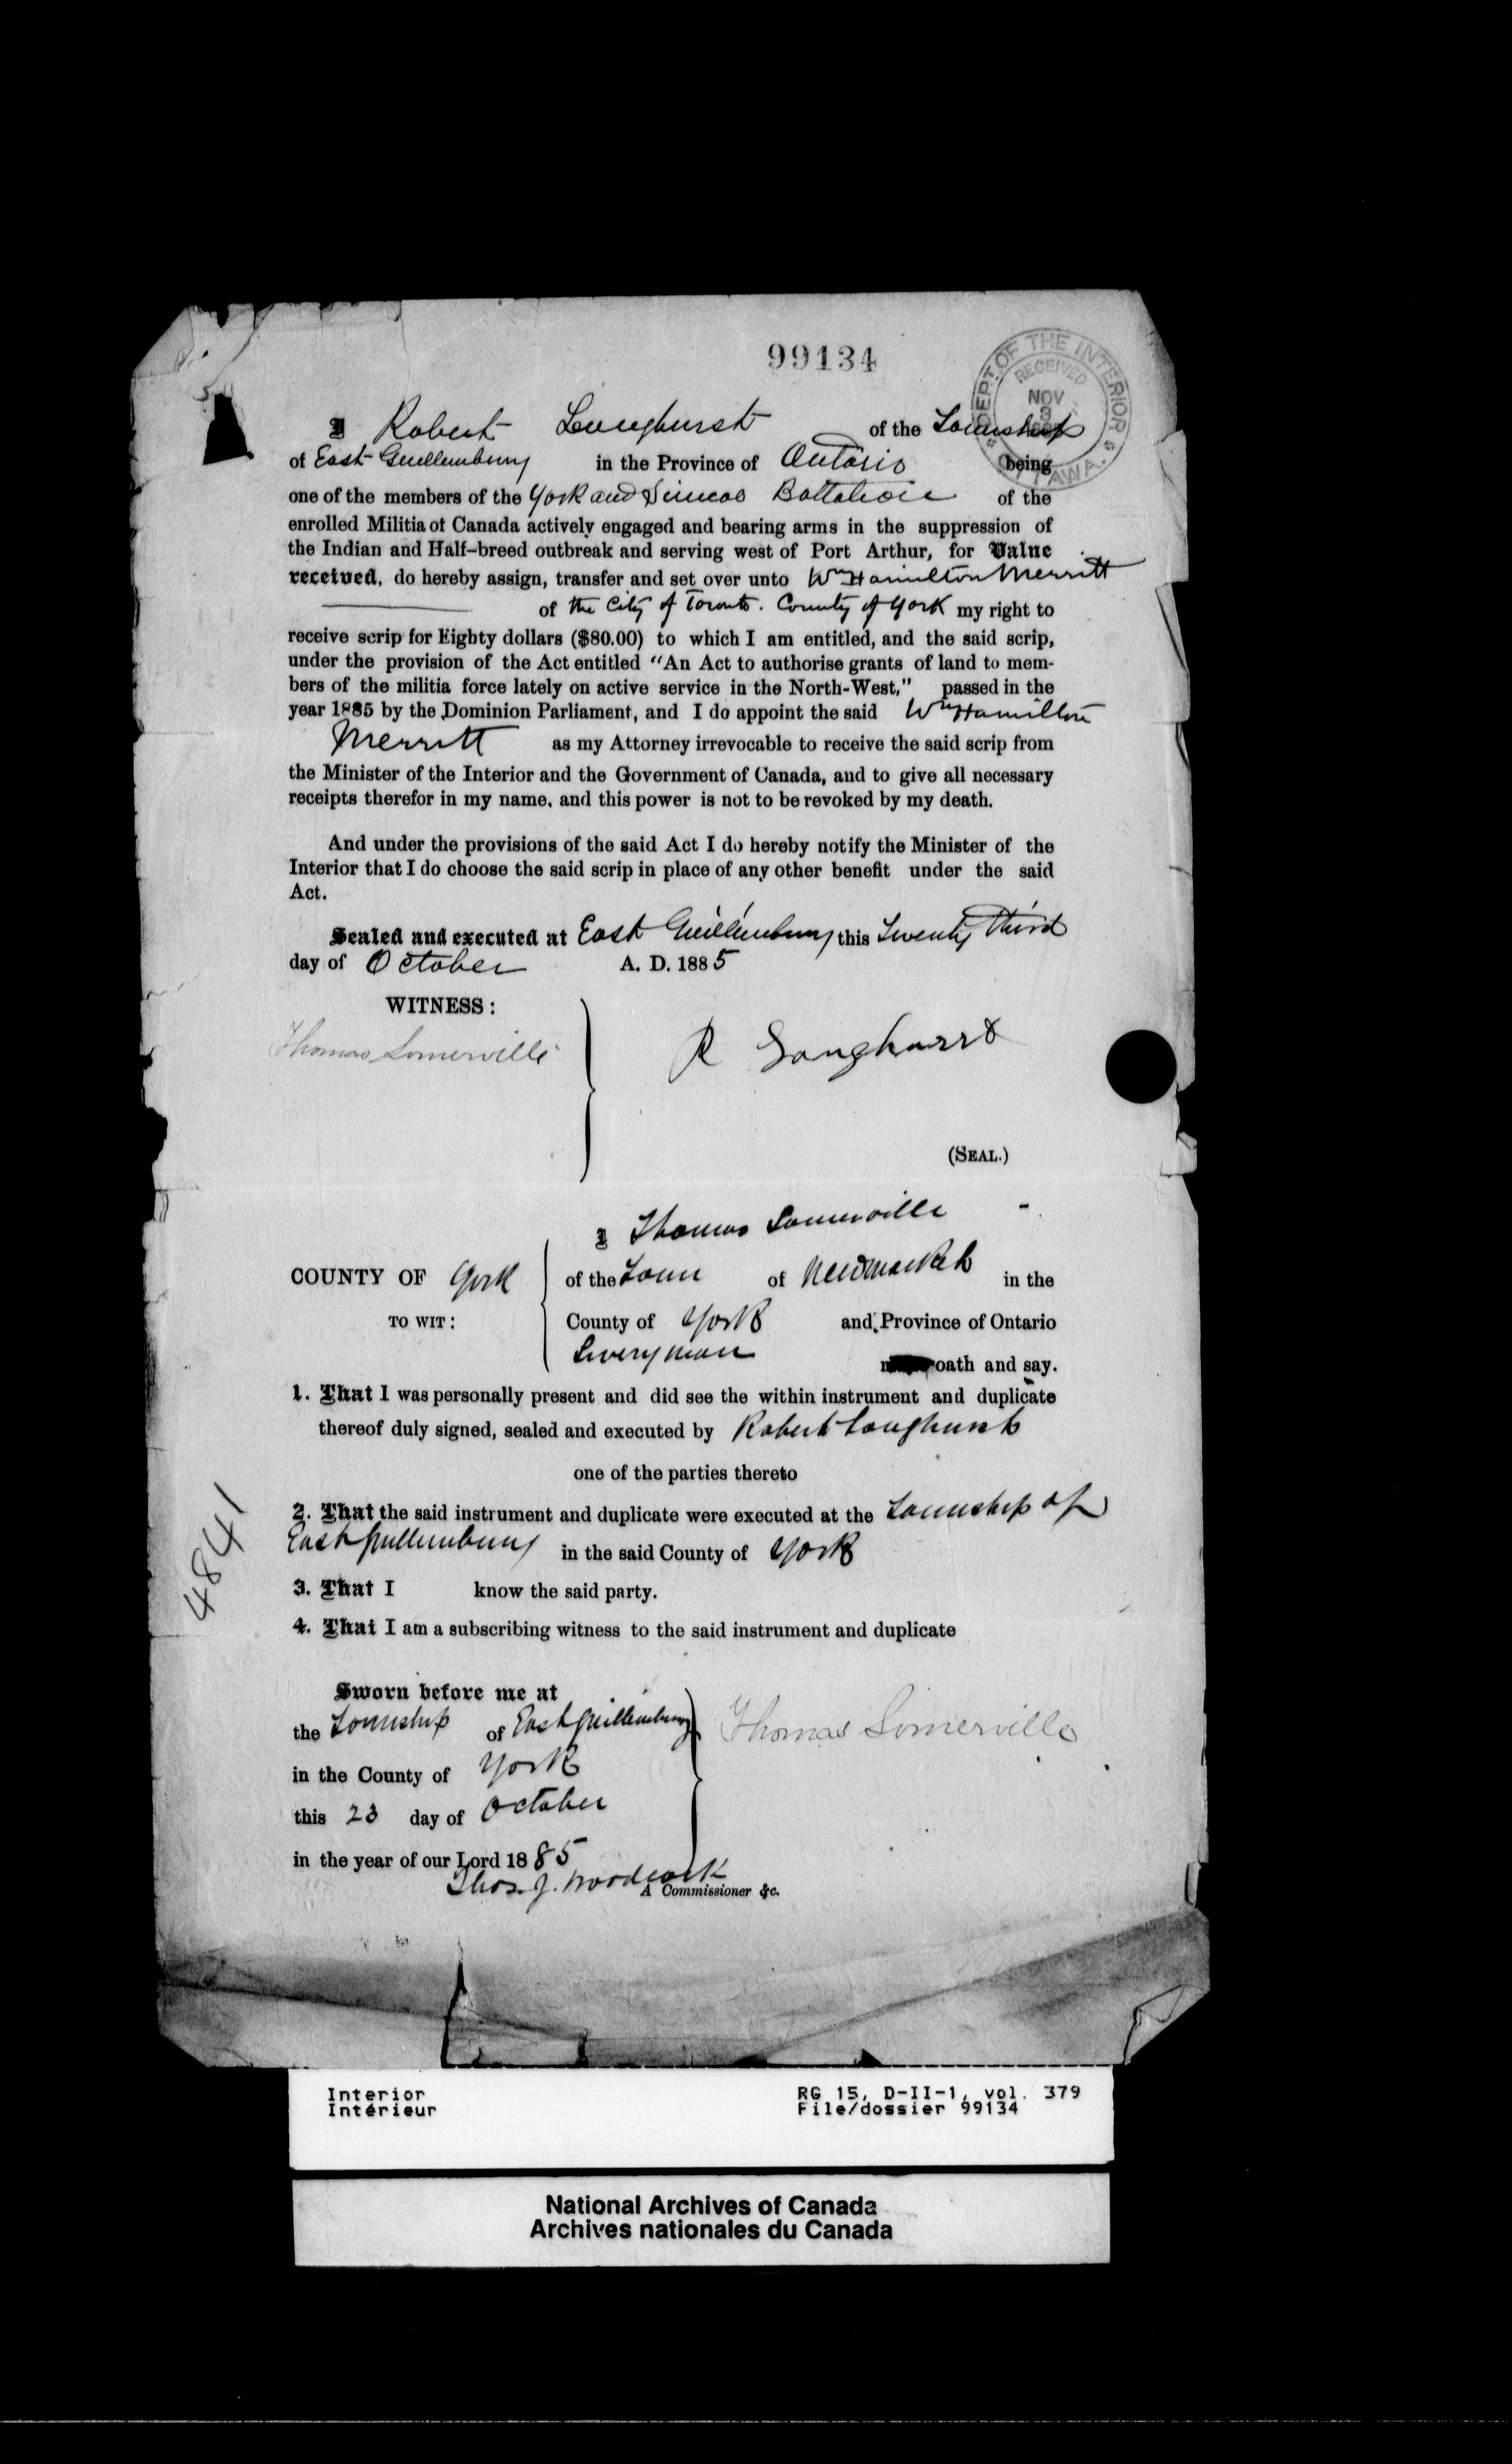 99134
DEPT. OF THE INTERIOR
RECEIVED
NOV
3
OTTAWA.
I Robert Longhurst of the Township
of East Guillembury in the Province of Ontario being
one of the members of the York and Simcoe Battalion of the
enrolled Militia of Canada actively engaged and bearing arms in the suppression of
the Indian and Half-breed outbreak and serving west of Port Arthur, for Value
received, do hereby assign, transfer and set over unto Wm Hamilton Merritt
of the City of Toronto. County of York my right to
receive scrip for Eighty dollars ($80.00) to which I am entitled, and the said scrip,
under the provision of the Act entitled "An Act to authorise grants of land to mem-
bers of the militia force lately on active service in the North-West," passed in the
year 1885 by the Dominion Parliament, and I do appoint the said Wm Hamilton
Merritt as my Attorney irrevocable to receive the said scrip from
the Minister of the Interior and the Government of Canada, and to give all necessary
receipts therefor in my name, and this power is not to be revoked by my death.
And under the provisions of the said Act I do hereby notify the Minister of the
Interior that I do choose the said scrip in place of any other benefit under the said
Act.
Sealed and executed at East Guillimbury this Twenty third
day of October A. D. 1885
WITNESS:
Thomas Somerville
R Longhurst
(SEAL.)
I Thomas Somerville
COUNTY OF York of the Town of Newmarket in the
TO WIT: County of York and Province of Ontario
Liveryman oath and say.
1. That I was personally present and did see the within instrument and duplicate
thereof duly signed, sealed and executed by Robert Longhurst
one of the parties thereto
2. That the said instrument and duplicate were executed at the Township of
East Guillembury in the said County of York
3. That I know the said party.
4. That I am a subscribing witness to the said instrument and duplicate
4841
Sworn before me at
the Township of East Guillembury
Thomas Somerville
in the County of York
this 23 day of October
in the year of our Lord 1885
Thos. J. Woodcock
A Commissioner &c.
Interior
Intérieur
RG 15, D-II-1, vol. 379
File/dossier 99134
National Archives of Canada
Archives nationales du Canada